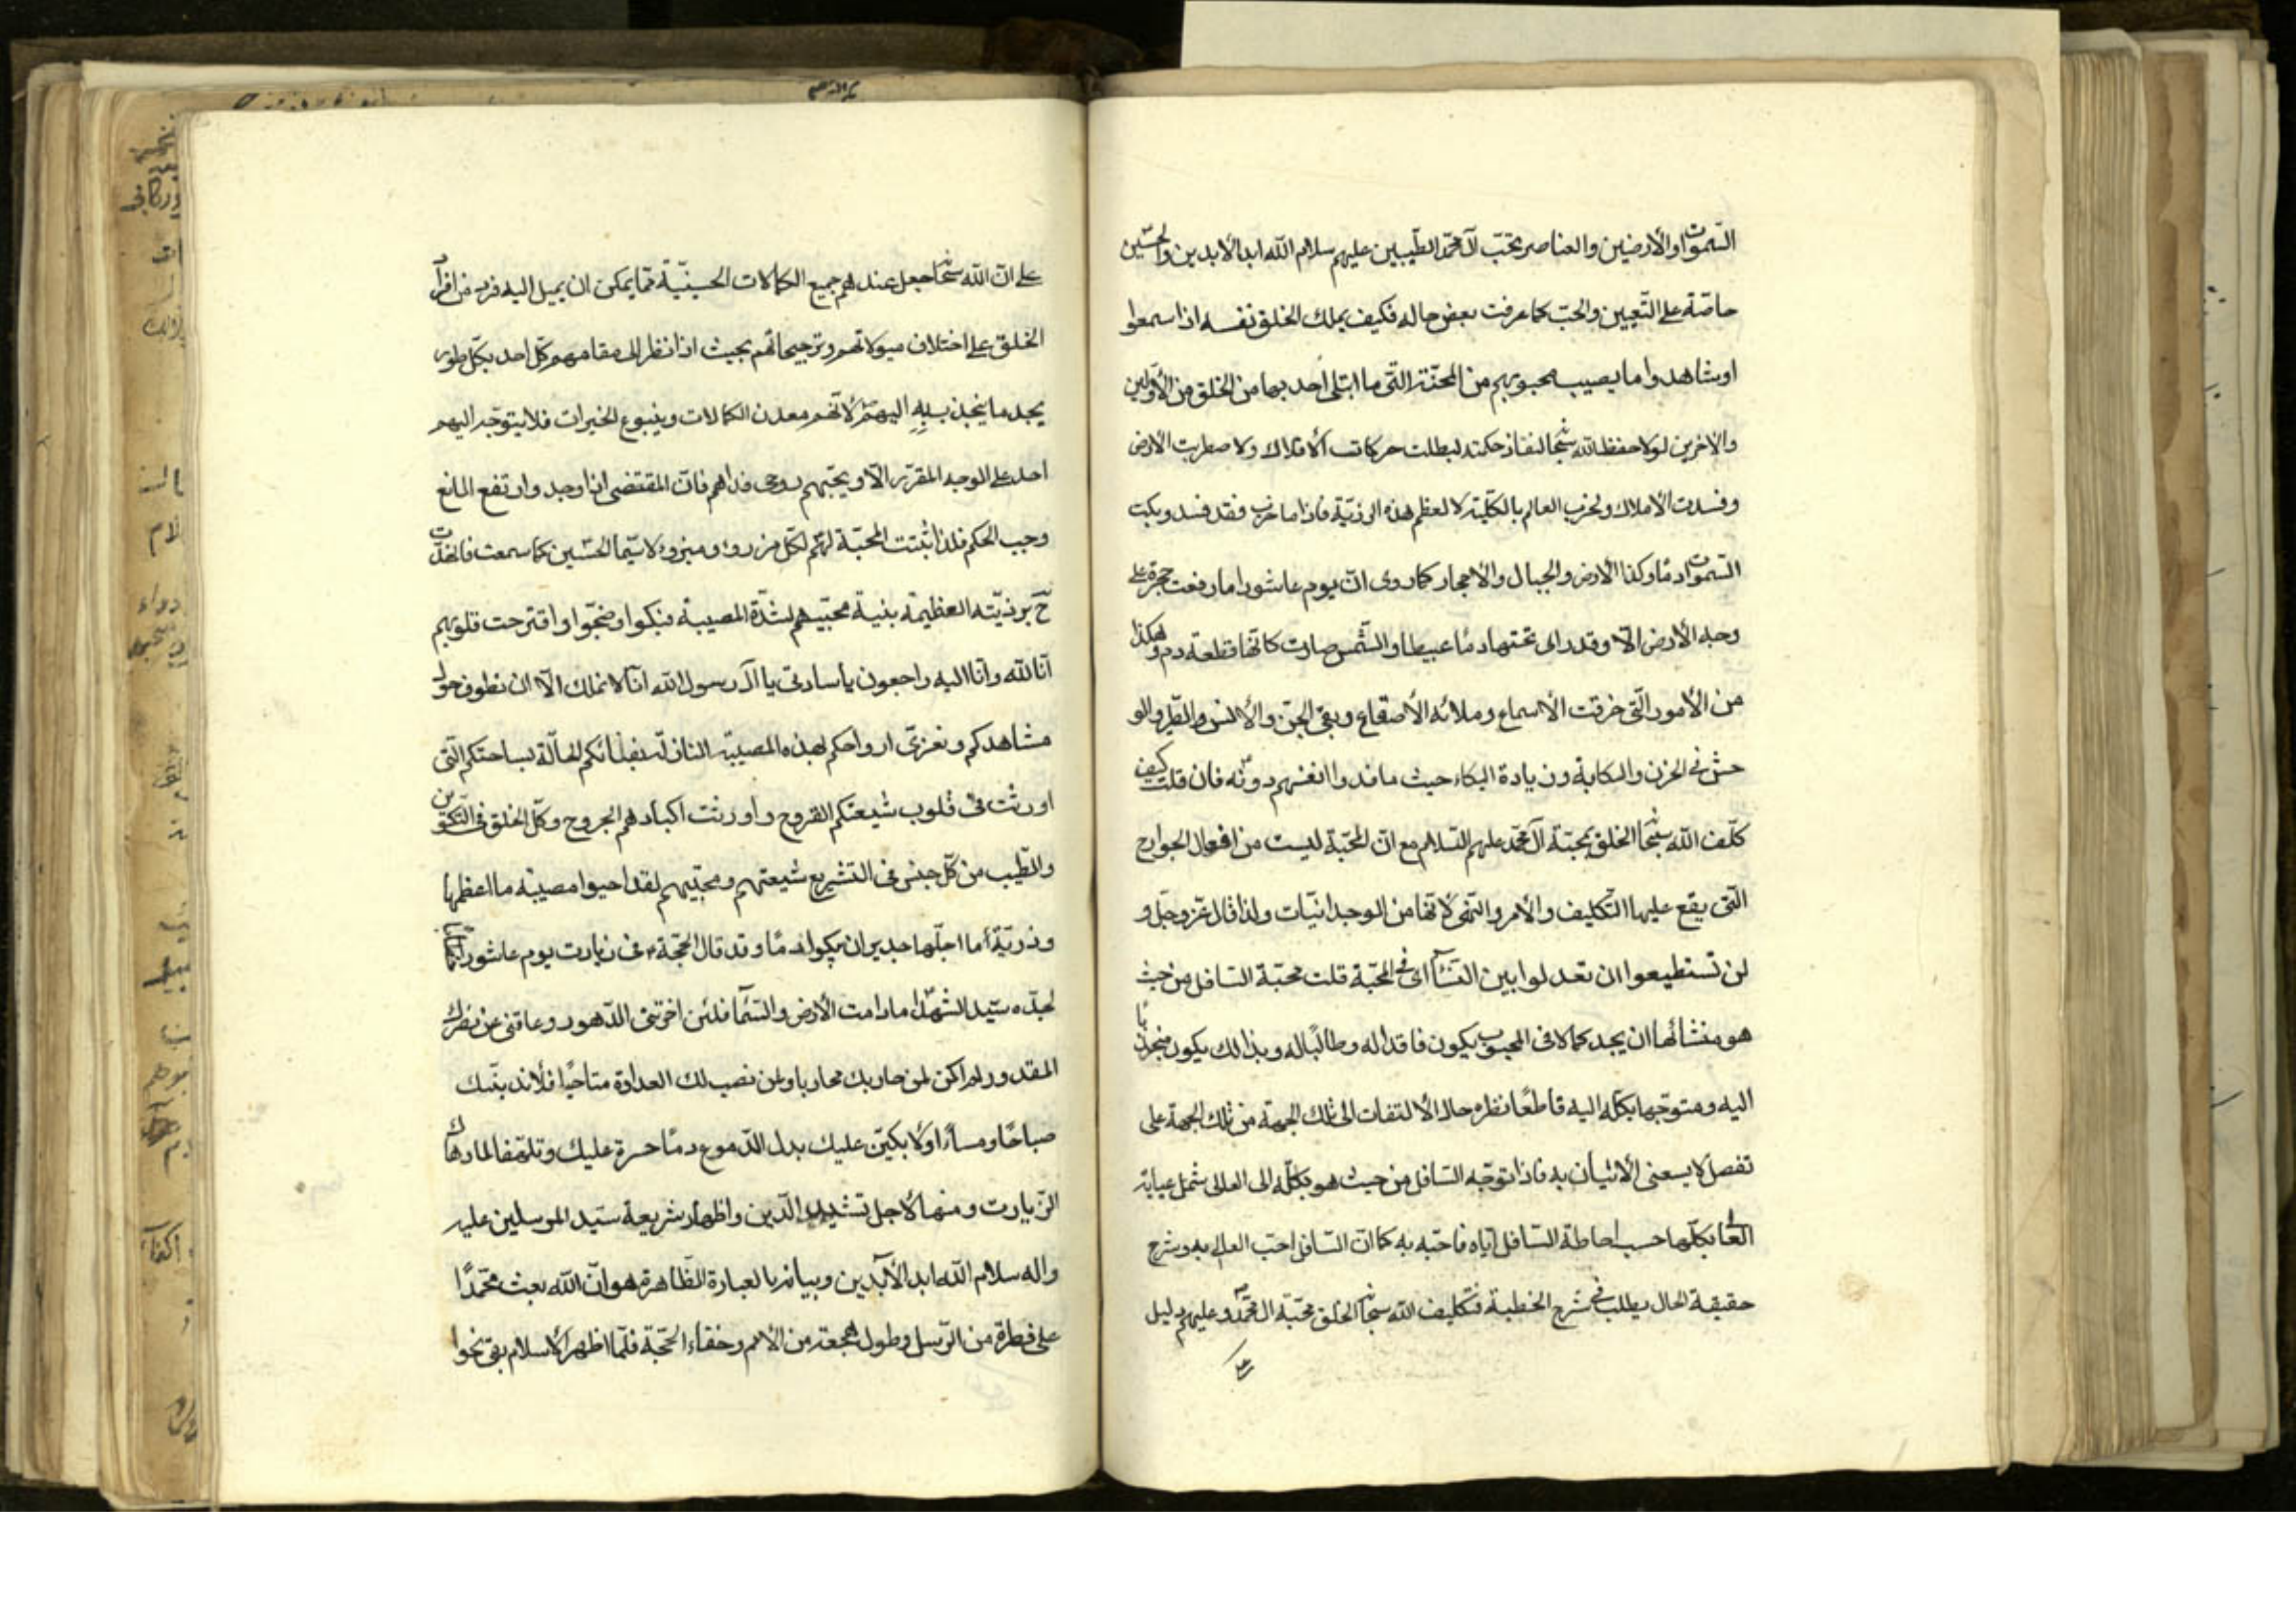 السموات والأرضين والعناصر تحبّ آل محمّد الطيّبين عليهم سلام الله ابد الأبدين والحسين
خاصّة على التّعيين والحبّ كما عرفت بعض حاله فكيف يملك الخلق نفسه اذا سمعوا
او شاهدوا ما يصيب محبوبهم من المحن الّتى ما ابتلى أحد بها من الخلق من الأوّلين
والاخرين لولا حفظ الله سبحا لنفاذ حكمته لبطلت حركات الأفلاك ولاضطربت الأرض
وفسدت الأملاك ولخرب العالم بالكلّيّة لعظم هذه الرزيّة فاذا ما خرب فقد فسد وبكت
السموات دمًا وكذا الأرض والجبال والأحجار كما روى انّ يوم عاشورا ما رفعت حجرة على
وجه الأرض الّا وقد راى تحتها دمًا عبيطا والشّمس صارت كانّها قطعة دم وهكذا
من الأمور الّتى خرقت الأسماع وملائه الأصقاع وبقى الجنّ والأنس والطّير والو
حش فى الحزن والكابة وزيادة البكاء حيث ما فدوا انفسهم دونه فان قلت كيف
كلّف الله سبحا الخلق بمحبّة آل محمّد عليهم السّلام مع انّ المحبّة ليست من افعال الجوارح
الّتى يقع عليها التّكليف والأمر والنّهى لانّها من الوجدانيّات ولذا قال عزّ وجلّ و
لن تستطيعوا ان تعدلوا بين النّسآء اى فى المحبّة قلت محبّة السّافل من حيث
هو منشائها ان يجد كمالا فى المحبوب يكون فاقدا له وطالبًا له وبذالك يكون منجذبًا
اليه ومتوجّها بكلّه اليه قاطعًا نظره حال الالتفات الى تلك الجهة من تلك الجهة على
تفصل لا يسعنى الأتيان به فاذا توجّه السّافل من حيث هو بكلّه الى العالى شمل عباية
العالى بكلّها حسب احاطة السّافل ايّاه فاحبّه به كما انّ السّافل احبّ العالى به وشرح
حقيقة الحال يطلب فى شرح الخطبة فتكليف الله سبحا الخلق محبّة ال محمّد وعليهم دليل
على انّ الله سبحا جعل عندهم جميع الكمالات الحسينيّة ممّا يمكن ان يميل اليه فرد من افراد
الخلق على اختلاف ميولاتهم وترجيحاتهم بحيث اذا نظر الى مقامهم كلّ احد بكلّ طور
يجد ما ينجذب به اليهم لانّهم معدن الكمالات وينبوع الخيرات فلا يتوجّه اليهم
احد على الوجه المقرّر الّا ويحبّهم روحى فداهم فانّ المقتضى اذا وجد وارتفع المانع
وجب الحكم فلذا ثبتت المحبّة لهم لكلّ مزروء ومبزوء لا سيّما الحسين كما سمعت
ح برزيّته العظيمة بنية محبّيهم لشدّة المصيبة فبكوا وضجّوا واقترحت قلوبهم
انّا لله وانّا اليه راجعون يا سادتى يا آل رسول الله انّا لا نملك الّا ان نطوف حول
مشاهدكم ونعزّى ارواحكم لهذه المصيبة النازلة بفنائكم لحالّة بساحتكم الّتى
اورثت فى قلوب شيعتكم القروح واورثت اكبادهم الجروح وكلّ الخلق فى التّكوين
والطّيب من كلّ جنس فى التشريع شيعتهم ومحبّيهم لقد احيوا مصيبة ما اعظمها
ورزيّة أما اجلّها جدير ان يبكوا دمًا وقد قال الحجّة فى زيارت يوم عاشورا
لجدّه سيّد الشهدا ما دامت الأرض والسّمآ فلئن اخّرتنى الدّهور وعاقنى عن نصرك
المقدور ولم اكن لمن حاربك محاربا ولمن نصب لك العداوة مناحبًا فلأندبنّك
صباحًا ومساءً ولأبكينّ عليك بدل الدّموع دمًا حسرة عليك وتلهّفا لما دهاك
الزّيارت ومنها لأجل تشييد الدّين واظهار شريعة سيّد المرسلين عليه
واله سلام الله ابد الأبدين وبيانه بالعبارة الظّاهرة هو انّ الله بعث محمّدًا
على فطرة من الرّسل وطول هجعة من الأمم وخفاء الحجّة فلمّا اظهر الأسلام بقى نحوا